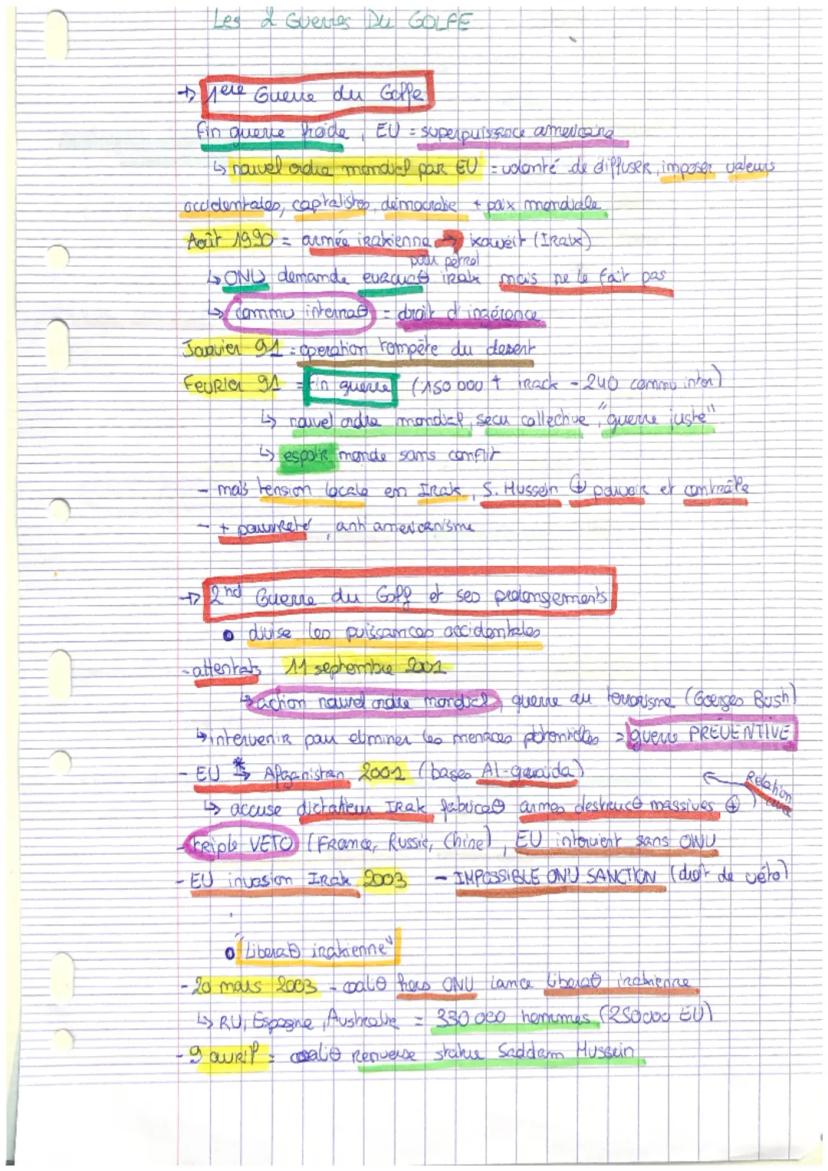 Les 2 Guerres Du GOLFE
→ 1ère Guerre du Golfe
Fin guerre froide, EU = superpuissance americaine
↳ nouvel ordre mondial par EU = volonté de diffuser, imposer valeurs
occidentales, capitalistes, démocratie + paix mondiale
Août 1990 = armée irakienne → Koweït (Irak)
pour pétrol
↳ ONU demande evacuaθ irak mais ne le fait pas
↳ commu internaθ = droit d'ingérence
Janvier 91 = operation tempête du desert
FEVRIER 91 = Fin guerre (150 000 † irack - 240 commu inter)
↳ nouvel ordre mondial, secu collective, "guerre juste"
↳ espoir monde sans conflit
- mais tension locale en Irak, S. Hussein ⊕ pouvoir et contrôle
- + pauvreté, anti americanisme
→ 2nd Guerre du Golf et ses prolongements
• divise les puissances occidentales
- attentats 11 septembre 2001
↳ action nouvel ordre mondial, guerre au terrorisme (Goerges Bush)
↳ intervenir pour eliminer les menaces potentielles = guerre PREVENTIVE
- EU → Afganistan 2001 (bases Al-qaida)
Relation
↳ accuse dictateur Irak fabricaθ armes destrucθ massives ⊕
- triple VETO (France, Russie, Chine), EU intervient sans ONU
- EU invasion Irak 2003 - IMPOSSIBLE ONU SANCTION (droit de véto)
• "Liberaθ irakienne"
- 20 mars 2003 - coaliθ hors ONU lance liberaθ irakienne
↳ RU, Espagne, Australie = 330 000 hommes (250 000 EU)
- 9 avril = coaliθ renverse statue Saddam Hussein